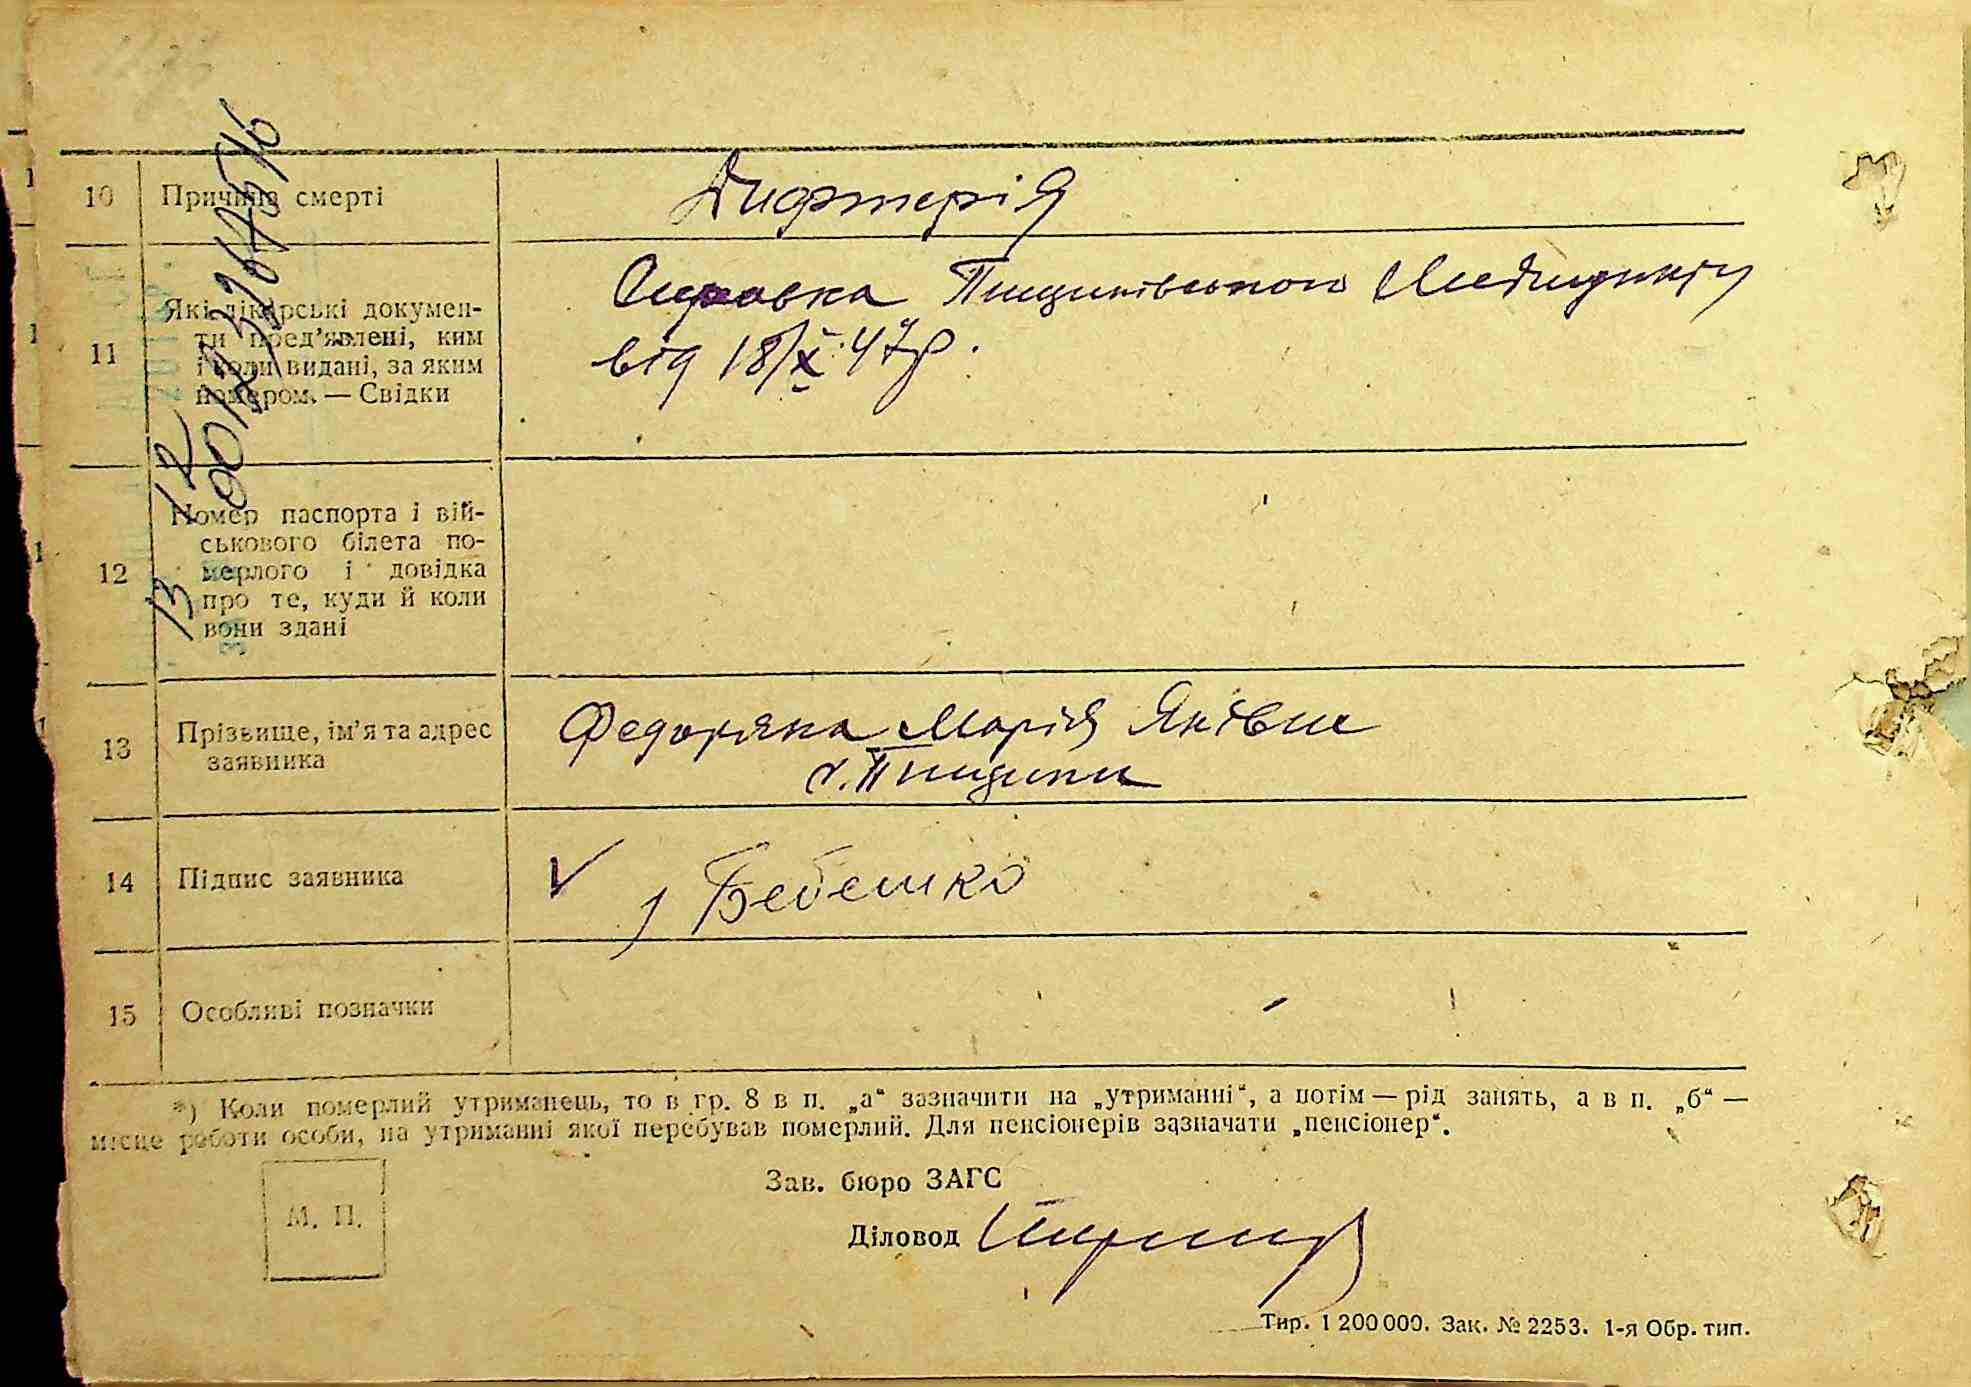 10 Причина смерті Дифтерія
11 Які лікарські докумен-
ти пред'явлені, ким
і коли видані, за яким
номером. — Свідки
Справка Пищиківського Медпункту
від 18/X 47р.
12 Номер паспорта і вій-
ськового білета по-
мерлого і довідка
про те, куди й коли
вони здані
13 Прізвище, ім'я та адрес
заявника
Марія Яківна
с. Пищики
14 Підпис заявника
Бебешко
15 Особливі позначки
*) Коли померлий утриманець, то в гр. 8 в п. „а“ зазначити на „утриманні“, а потім — рід занять, а в п. „б“ —
місце роботи особи, на утриманні якої перебував померлий. Для пенсіонерів зазначати „пенсіонер“.
М. П.
Зав. бюро ЗАГС
Діловод
Тир. 1 200 000. Зак. № 2253. 1-я Обр. тип.